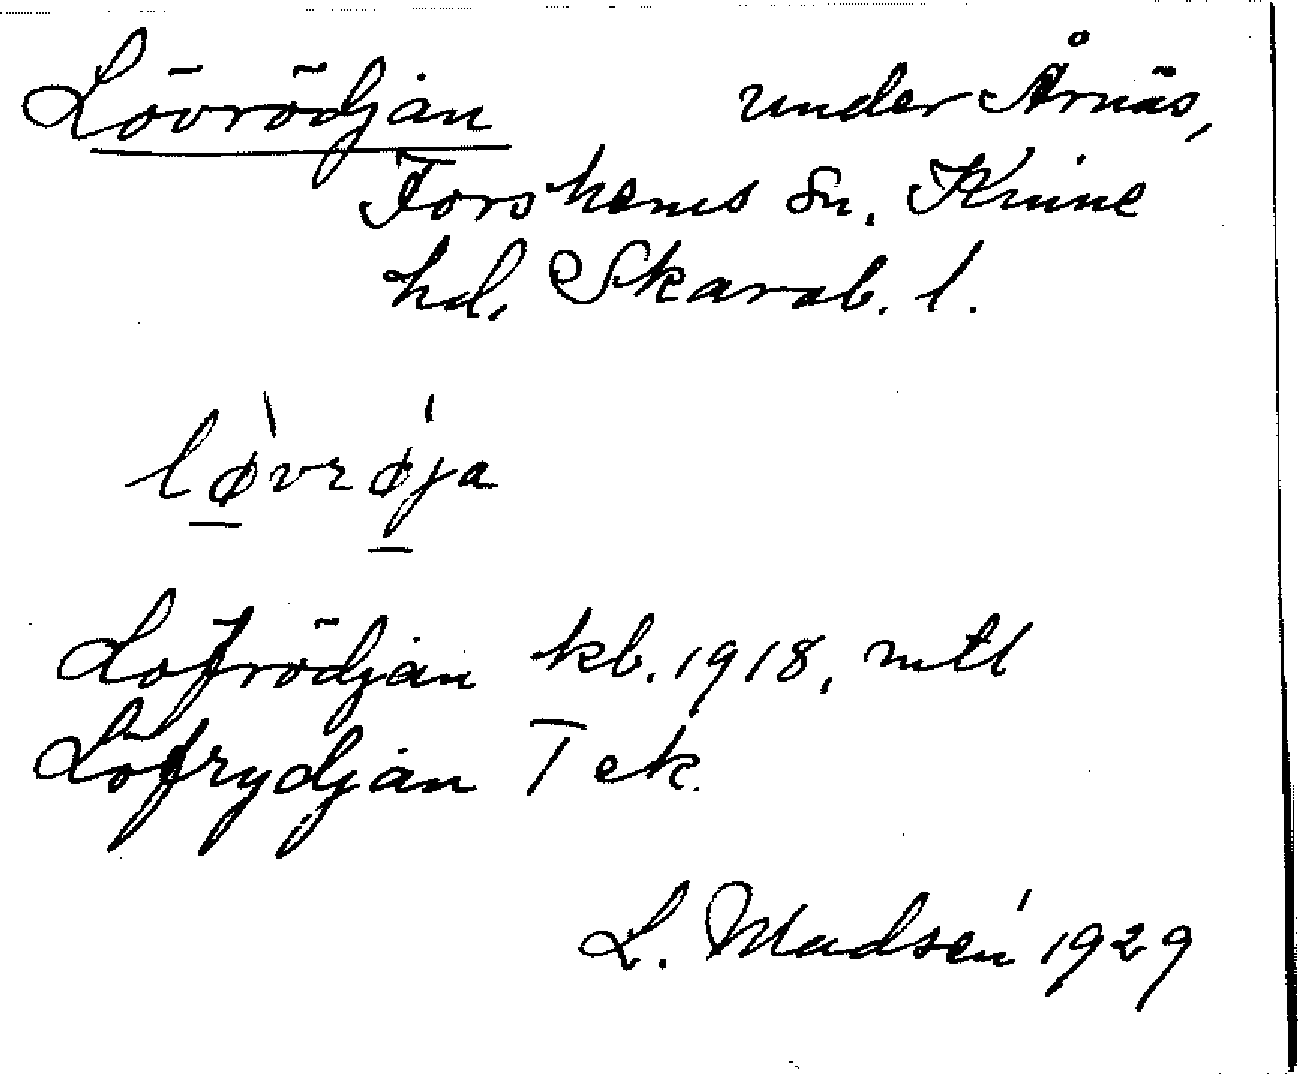 Lövrödjan under Årnäs,
Forshems sn. Kinne
hd. Skarab. l.
lø̀vrǿja
Löfrödjan kb. 1918, mtl
Löfrydjan T ek.
L. Madsén 1929